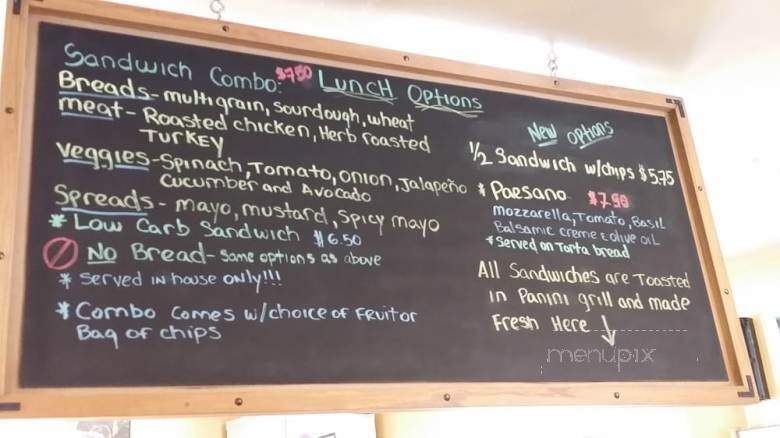 Sandwich Combo: $7.50 Lunch Options
Breads - multigrain, sourdough, wheat
meat - Roasted chicken, Herb roasted
Turkey
Veggies - Spinach, Tomato, onion, Jalapeño
Cucumber and Avocado
Spreads - mayo, mustard, spicy mayo
* Low Carb Sandwich $6.50
No Bread - Same options as above
* Served in house only!!!
* Combo comes w/choice of Fruit or
Bag of chips
New Options
1/2 Sandwich w/chips $5.75
* Paesano $7.50
mozzarella, Tomato, Basil
Balsamic creme & olive oil
* Served on Torta bread
All Sandwiches are Toasted
in Panini grill and made
Fresh Here
menupix